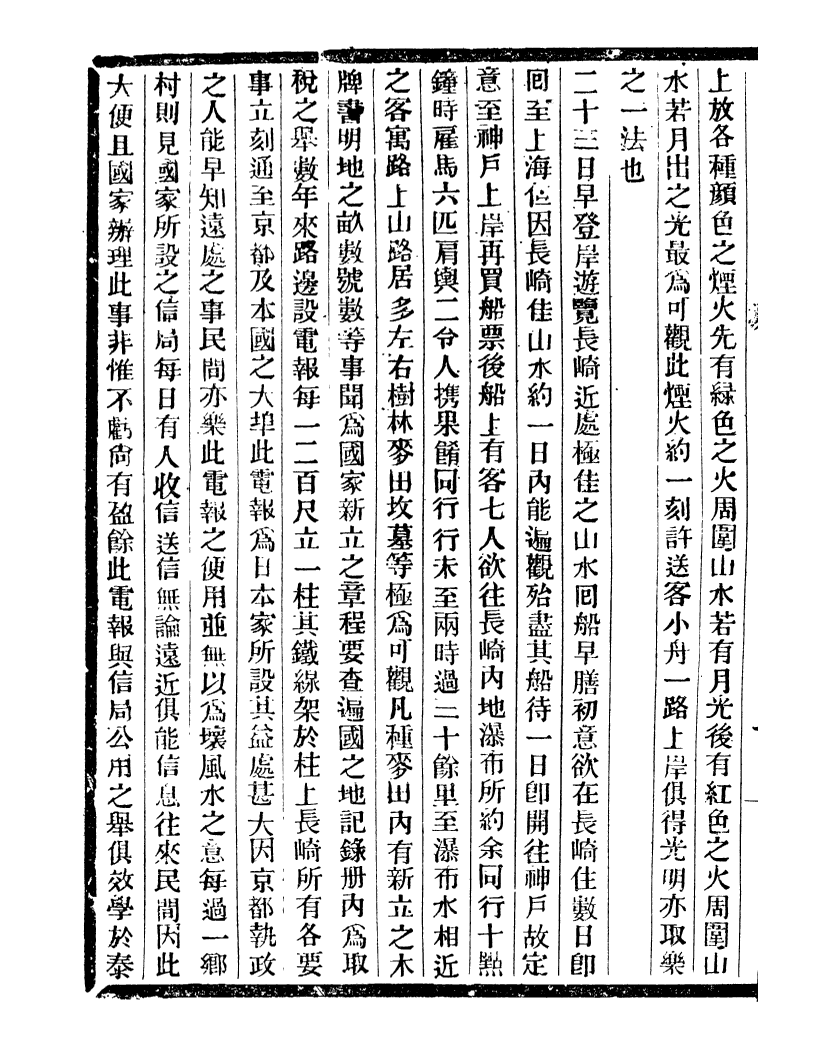 上放各種顏色之煙火先有綠色之火周圍山水若有月光後有紅色之火周圍山
水若月出之光最爲可觀此煙火約一刻許送客小舟一路上岸俱得光明亦取樂
之一法也
二十三日早登岸遊覽長崎近處極佳之山水囘船早膳初意欲在長崎住數日卽
囘至上海但因長崎佳山水約一日內能遍觀殆盡其船待一日卽開往神戶故定
意至神戶上岸再買船票後船上有客七人欲往長崎內地瀑布所約余同行十點
鐘時雇馬六匹肩輿二令人攜果餚同行行未至兩時過二十餘里至瀑布水相近
之客寓路上山路居多左右樹林麥田坟墓等極爲可觀凡種麥田內有新立之木
牌書明地之畝數號數等事聞爲國家新立之章程要查遍國之地記錄册內爲取
稅之舉數年來路邊設電報每一二百尺立一柱其鐵線架於柱上長崎所有各要
事立刻通至京都及本國之大埠此電報爲日本家所設其益處甚大因京都執政
之人能早知遠處之事民間亦樂此電報之便用並無以爲壞風水之意每過一鄉
村則見國家所設之信局每日有人收信送信無論遠近俱能信息往來民間因此
大便且國家辦理此事非惟不虧尙有盈餘此電報與信局公用之舉俱效學於泰